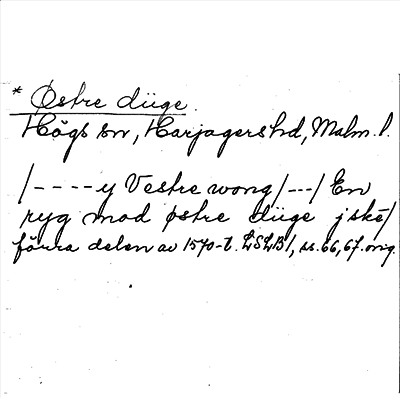 * Østre düge.
Högs sn, Harjagers hd, Malm. l.
/----y Vestre wong/---/ En
ryg mod østre düge j ske/
förra delen av 1570-t. LSLB 1, ss. 66, 67. orig.